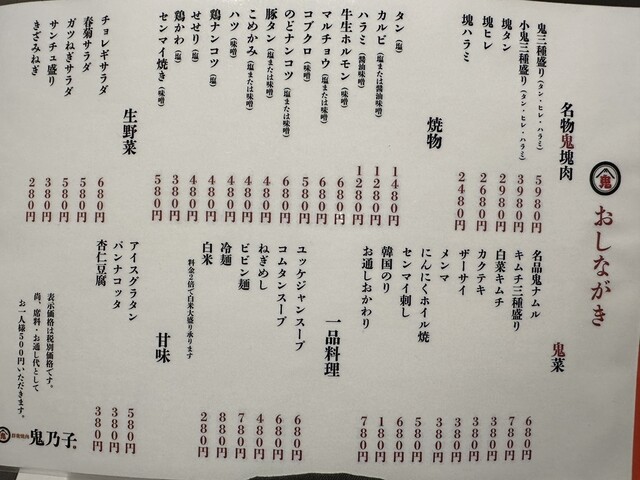 おしながき
名物鬼塊肉
鬼三種盛り(タン・ヒレ・ハラミ) 5980円
小鬼三種盛り(タン・ヒレ・ハラミ) 3980円
塊タン 2980円
塊ヒレ 2680円
塊ハラミ 2480円
焼物
タン(塩) 1480円
カルビ(塩または醤油味噌) 1280円
ハラミ(醤油味噌) 1280円
牛生ホルモン(味噌) 680円
マルチョウ(塩または味噌) 680円
コブクロ(味噌) 580円
のどナンコツ(塩または味噌) 680円
豚タン(塩または味噌) 480円
こめかみ(塩または味噌) 480円
ハツ(味噌) 480円
鶏ナンコツ(塩) 480円
せせり(塩) 480円
鶏かわ(塩) 380円
センマイ焼き(味噌) 580円
生野菜
チョレギサラダ 680円
春菊サラダ 580円
ガツねぎサラダ 580円
サンチュ盛り 380円
きざみねぎ 280円
鬼菜
名品鬼ナムル 680円
キムチ三種盛り 780円
白菜キムチ 380円
カクテキ 380円
ザーサイ 380円
メンマ 380円
にんにくホイル焼 580円
センマイ刺し 680円
韓国のり 180円
お通しおかわり 780円
一品料理
ユッケジャンスープ 680円
コムタンスープ 680円
ねぎめし 480円
ビビン麺 780円
冷麺 880円
白米 280円
料金2倍で白米大盛り承ります
甘味
アイスグラタン 580円
パンナコッタ 380円
杏仁豆腐 380円
表示価格は税別価格です。
尚、席料・お通し代として
お一人様500円いただきます。
鬼乃子